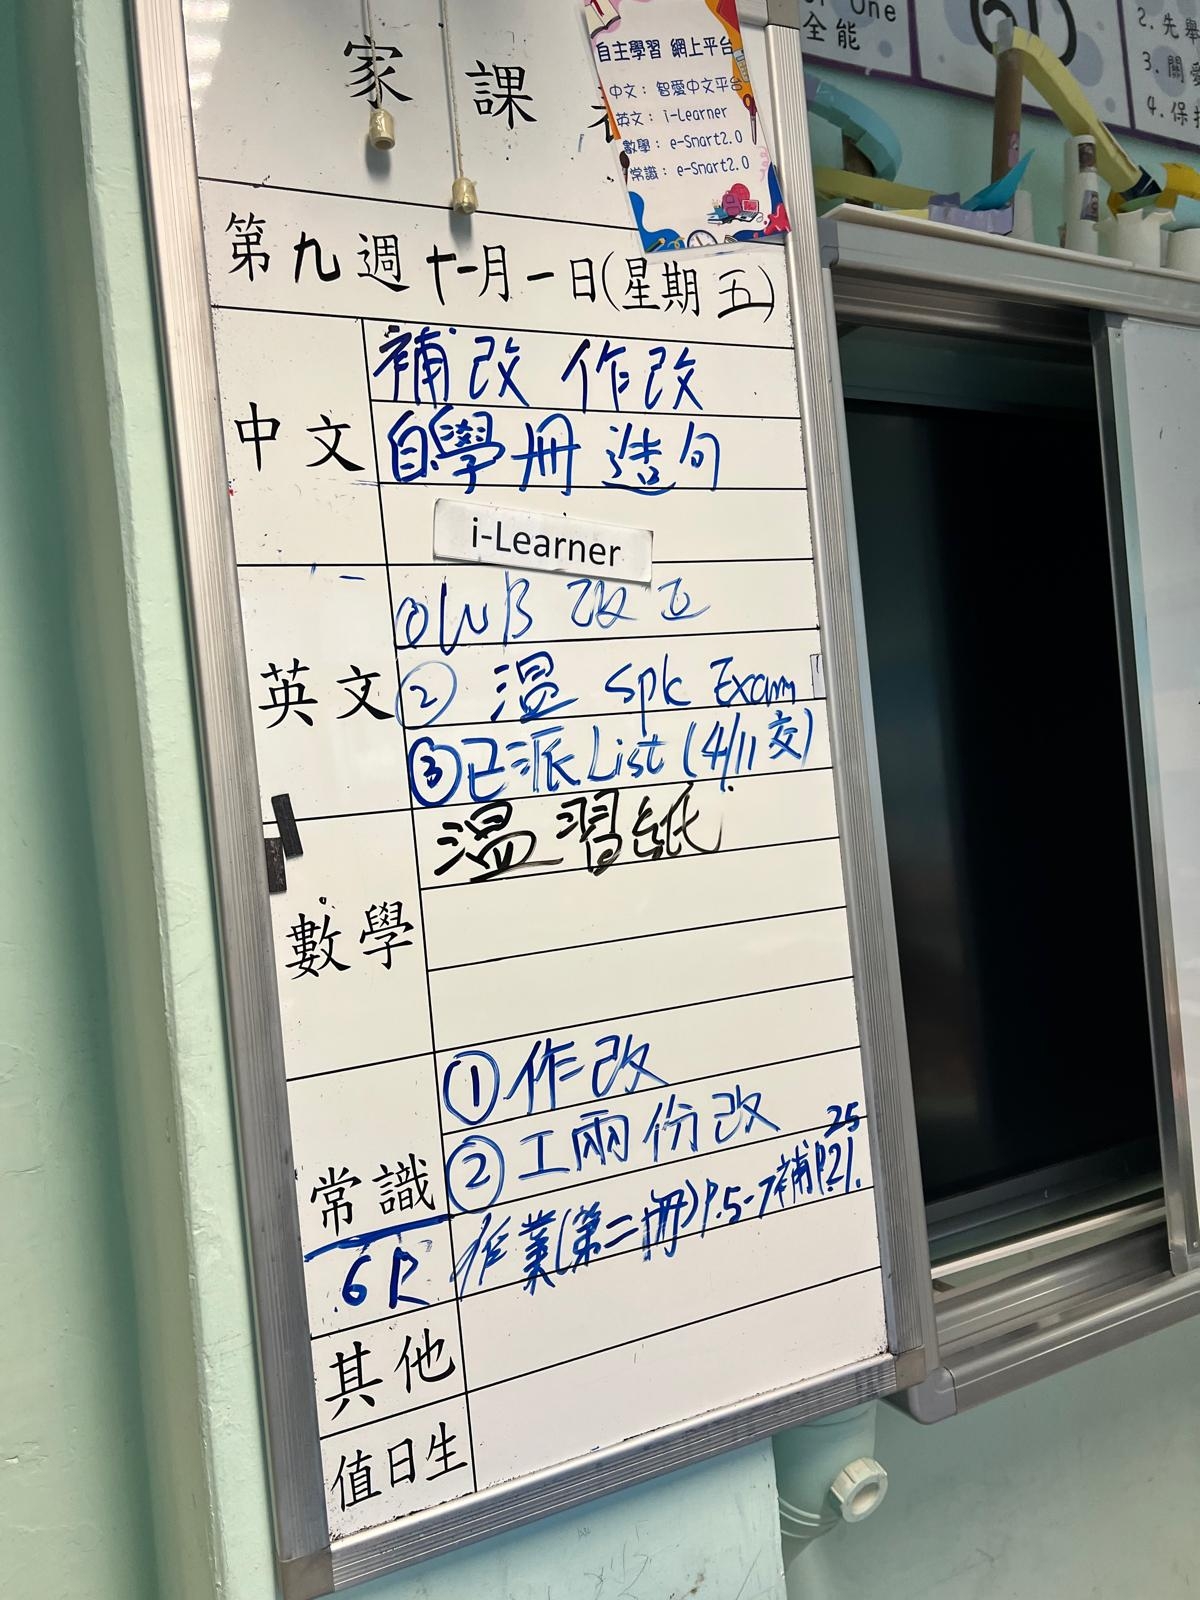 家課
自主學習 網上平台
中文：智愛中文平台
英文：i-Learner
數學：e-Smart2.0
常識：e-Smart2.0
One
全能
2.先
3.關
4.保
第九週十一月一日(星期五)
中文
補改 作改
自學冊 造句
i-Learner
英文
①WB 改正
② 溫 spk Exam
③已派List (4/11交)
數學
溫習紙
常識
①作改
②工兩份改
6R
作業(第二冊)P.5-7補P.21.
25
其他
值日生